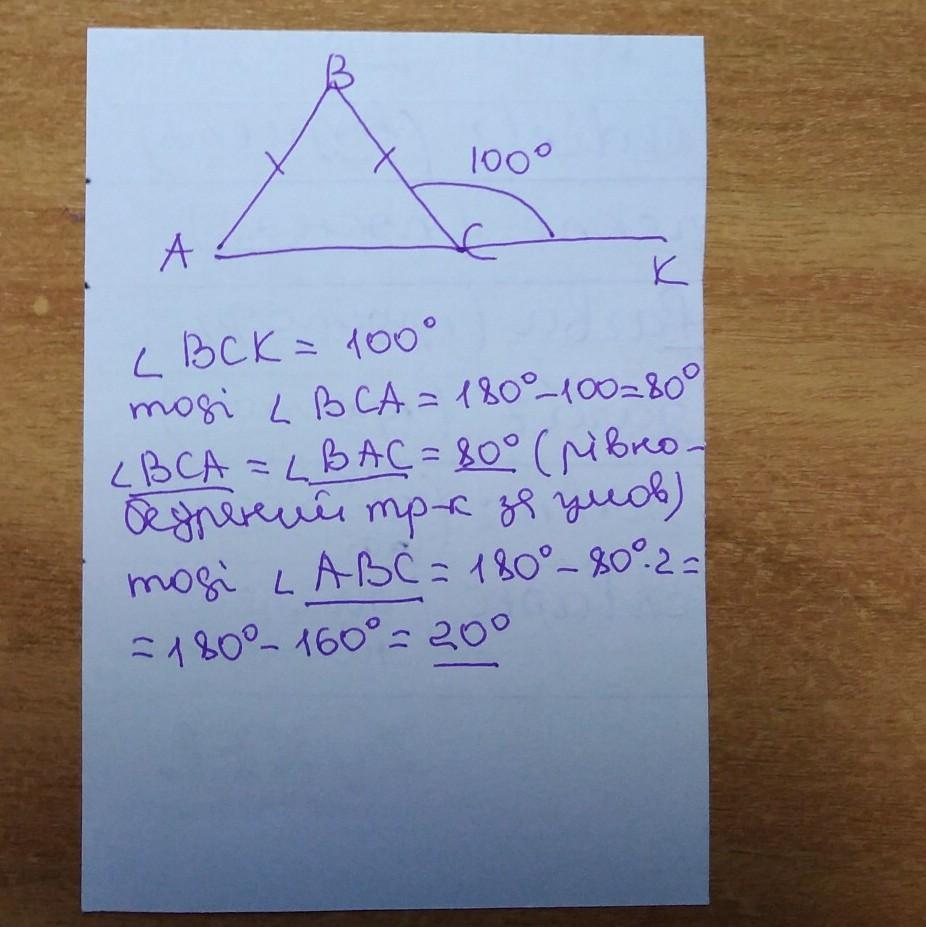 B
100°
A
C
K
∠ BCK = 100°
тоді ∠ BCA = 180° - 100 = 80°
∠BCA = ∠BAC = 80° (рівно-
бедрений тр-к за умов)
тоді ∠ ABC = 180° - 80°·2 =
= 180° - 160° = 20°